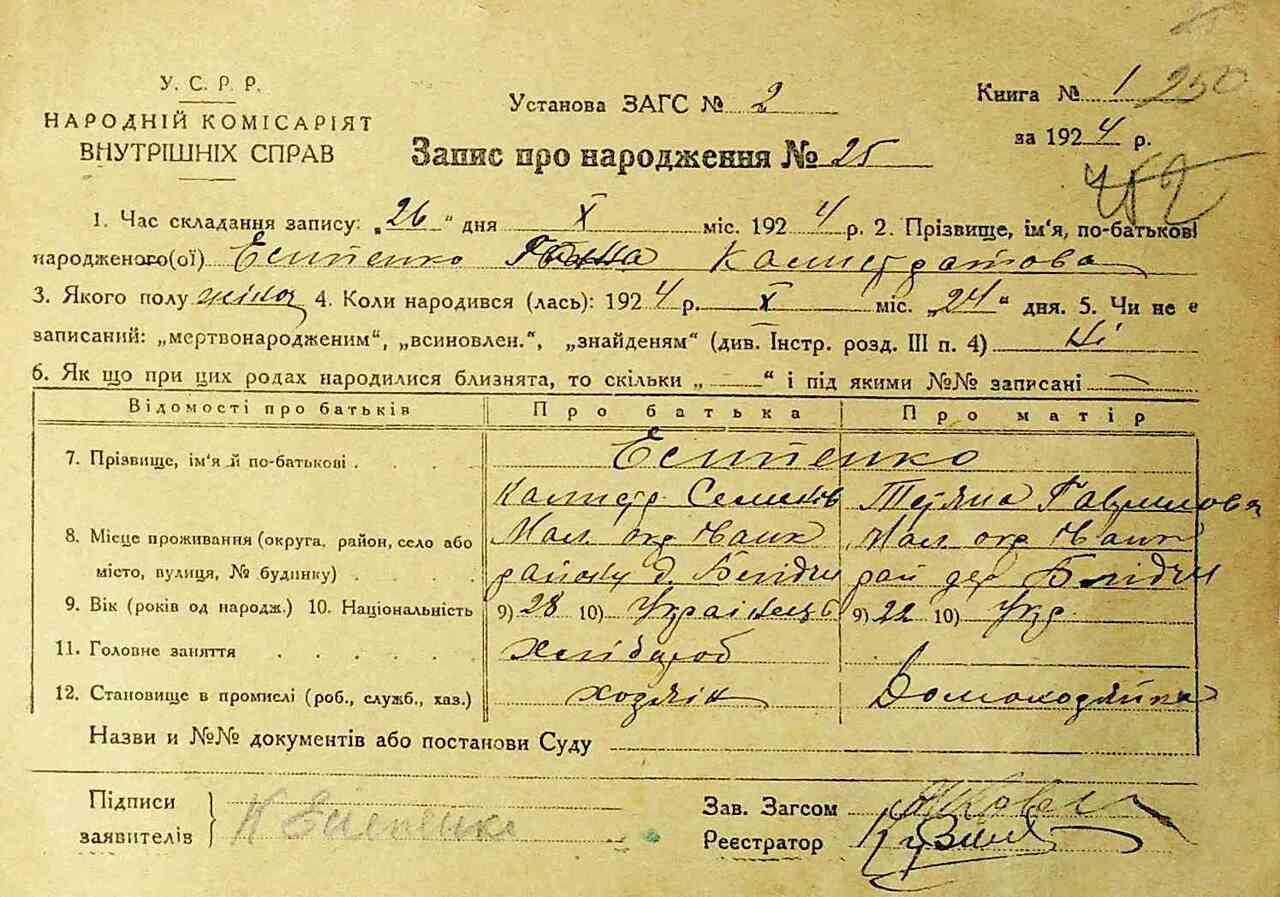 У. С. Р. Р.
НАРОДНІЙ КОМІСАРІЯТ
ВНУТРІШНІХ СПРАВ
Установа ЗАГС № 2
Книга № 1 250
за 1924 р.
Запис про народження № 25
452
1. Час складання запису: „26“ дня X міс. 1924 р. 2. Прізвище, ім'я, по-батькові
народженого(ої) Есипенко Калистратова
3. Якого полу жіноч 4. Коли народився (лась): 1924 р. X міс. „24“ дня. 5. Чи не є
записаний: „мертвонародженим“, „всиновлен.“, „знайденям“ (див. Інстр. розд. III п. 4) Ні
6. Як що при цих родах народилися близнята, то скільки „ — “ і під якими №№ записані —
Відомості про батьків Про батька Про матір
7. Прізвище, ім'я й по-батькові . . . . Есипенко
Калистр Семенів Тетяна Гаврилова
8. Місце проживання (округа, район, село або Мал. окр Іванк Мал. окр Іванк
місто, вулиця, № будинку) . . . . району д. рай дер
9. Вік (років од народж.) 10. Національність 9) 28 10) Українець 9) 22 10) Укр.
11. Головне заняття . . . . . . Хлібороб
12. Становище в промислі (роб., служб., хаз.) хозяїн Домохозяйка
Назви и №№ документів або постанови Суду
Підписи
заявителів
К Есипенко
Зав. Загсом
Реєстратор